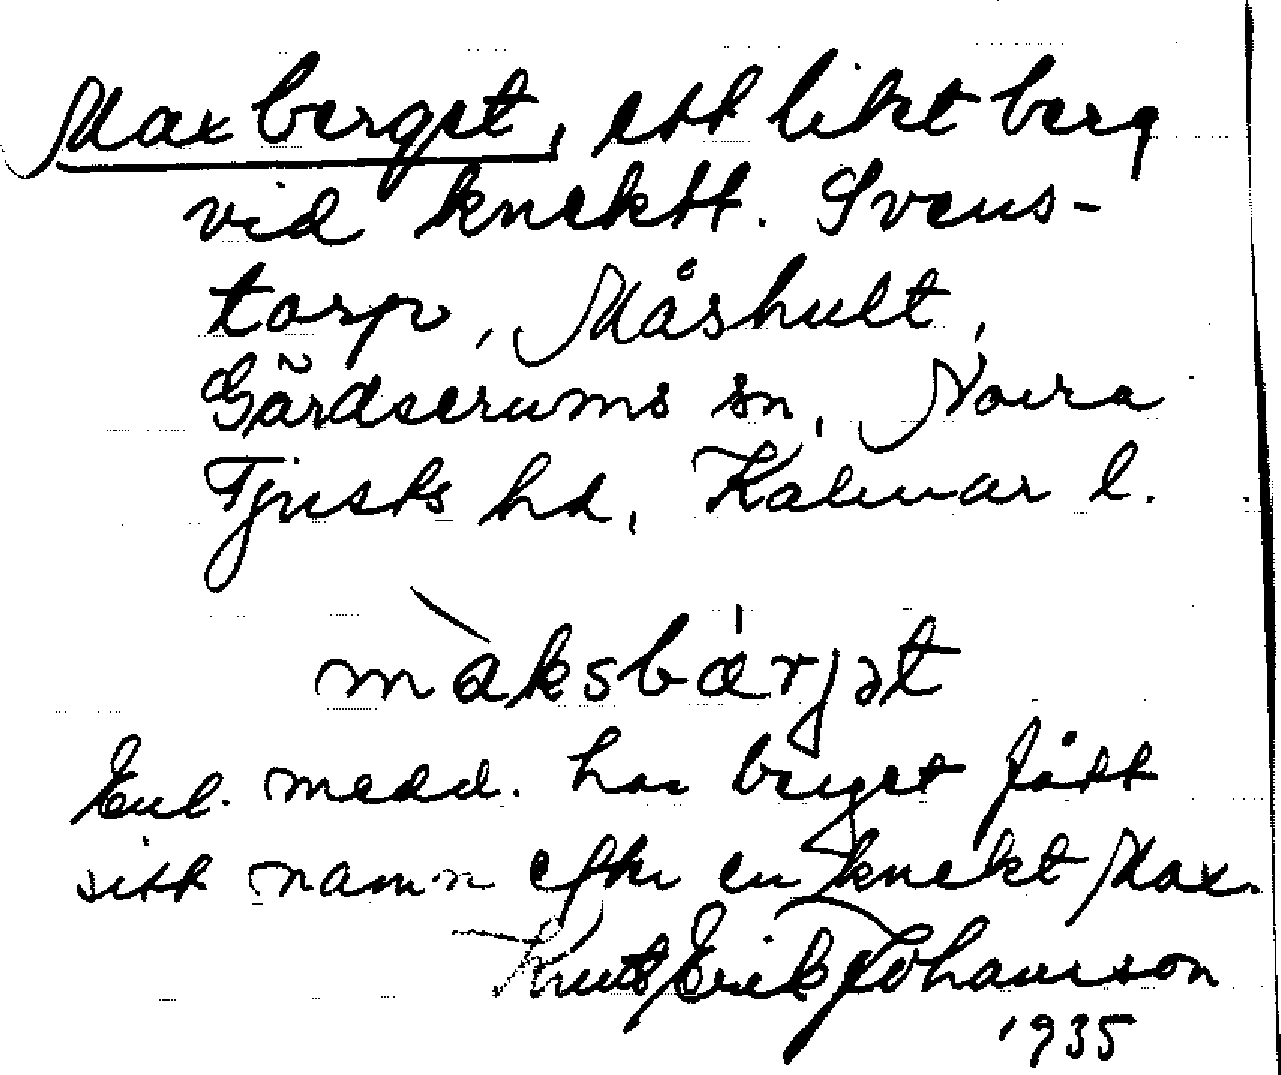 Maxberget, ett litet berg
vid knektt. Svens-
torp, Måshult,
Gärdserums sn, Norra
Tjusts hd, Kalmar l.
màksbærjət
Enl. medd. har berget fått
sitt namn efter en knekt Max.
Knut Erik Johansson
1935